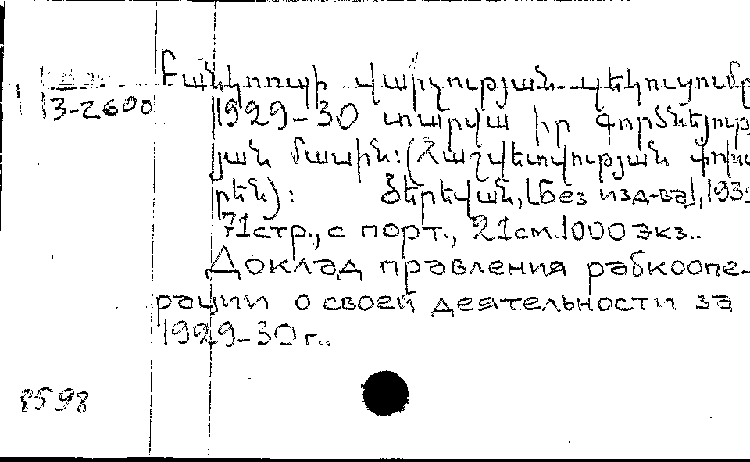 Բանկոոպի վարչության զեկուցումը
3-2600 1929-30 տարվա իր գործնեյութ
յան մասին: (Հաշվետվության փոխա
րեն): Յերեվան, [без изд-ва], 193
71 стр., с порт., 21 см. 1000 экз..
Доклад правления рабкоопе-
рации о своей деятельности за
1929-30 г..
8598